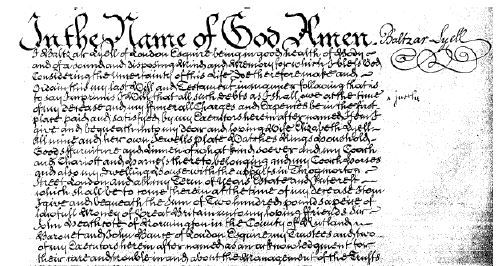 In the Name of God Amen.
Baltzar Lyell
I Baltzar Lyell of London Esquire being in good health of Body
and of a sound and disposing Mind and Memory for which I bless God
Considering the uncertainty of this Life Doe therefore make and
Ordain this my last Will and Testament in manner following that is
to say Imprimis I Will that all such debts as I shall owe at the time
justly
of my decease and my Funerall Charges and Expences be in the first
place paid and satisfied by my Executors herein after named Item I
give and bequeath unto my Dear and loving Wife Elizabeth Lyell
All mine and her own Jewells Plate Watches Rings Household
Goods Furniture and Linnen of what kind soever and my Coach
and Chariot and Harness thereto belonging and my Coach Horses
and also my Dwelling House with the appurts in Throgmorton
Street London and all my Term of Years Estate and Interest
which shall be to come therein at the time of my decease Item
I give and bequeath the Sum of Two hundred pounds apiece of
lawfull Money of Great Britain unto my loving Friends Sir
John Heathcote of Normington in the County of Rutland
Baronet and John Bance of London Esquire my Trustees and two
of my Executors herein after named as an acknowledgment for
their care and trouble in and about the Management of the Trusts